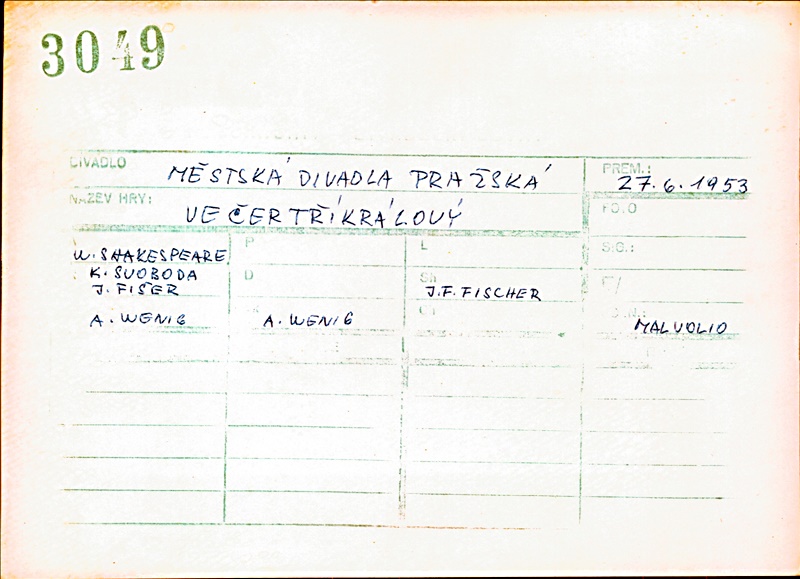 3049
DIVADLO MĚSTSKÁ DIVADLA PRAŽSKÁ PREM.: 27.6.1953
NÁZEV HRY: VEČER TŘÍKRÁLOVÝ FO.O
W. SHAKESPEARE P L S.G.:
K. SVOBODA D Sh F/
J. FIŠER J.F. FISCHER
A. WENIG A. WENIG MALVOLIO